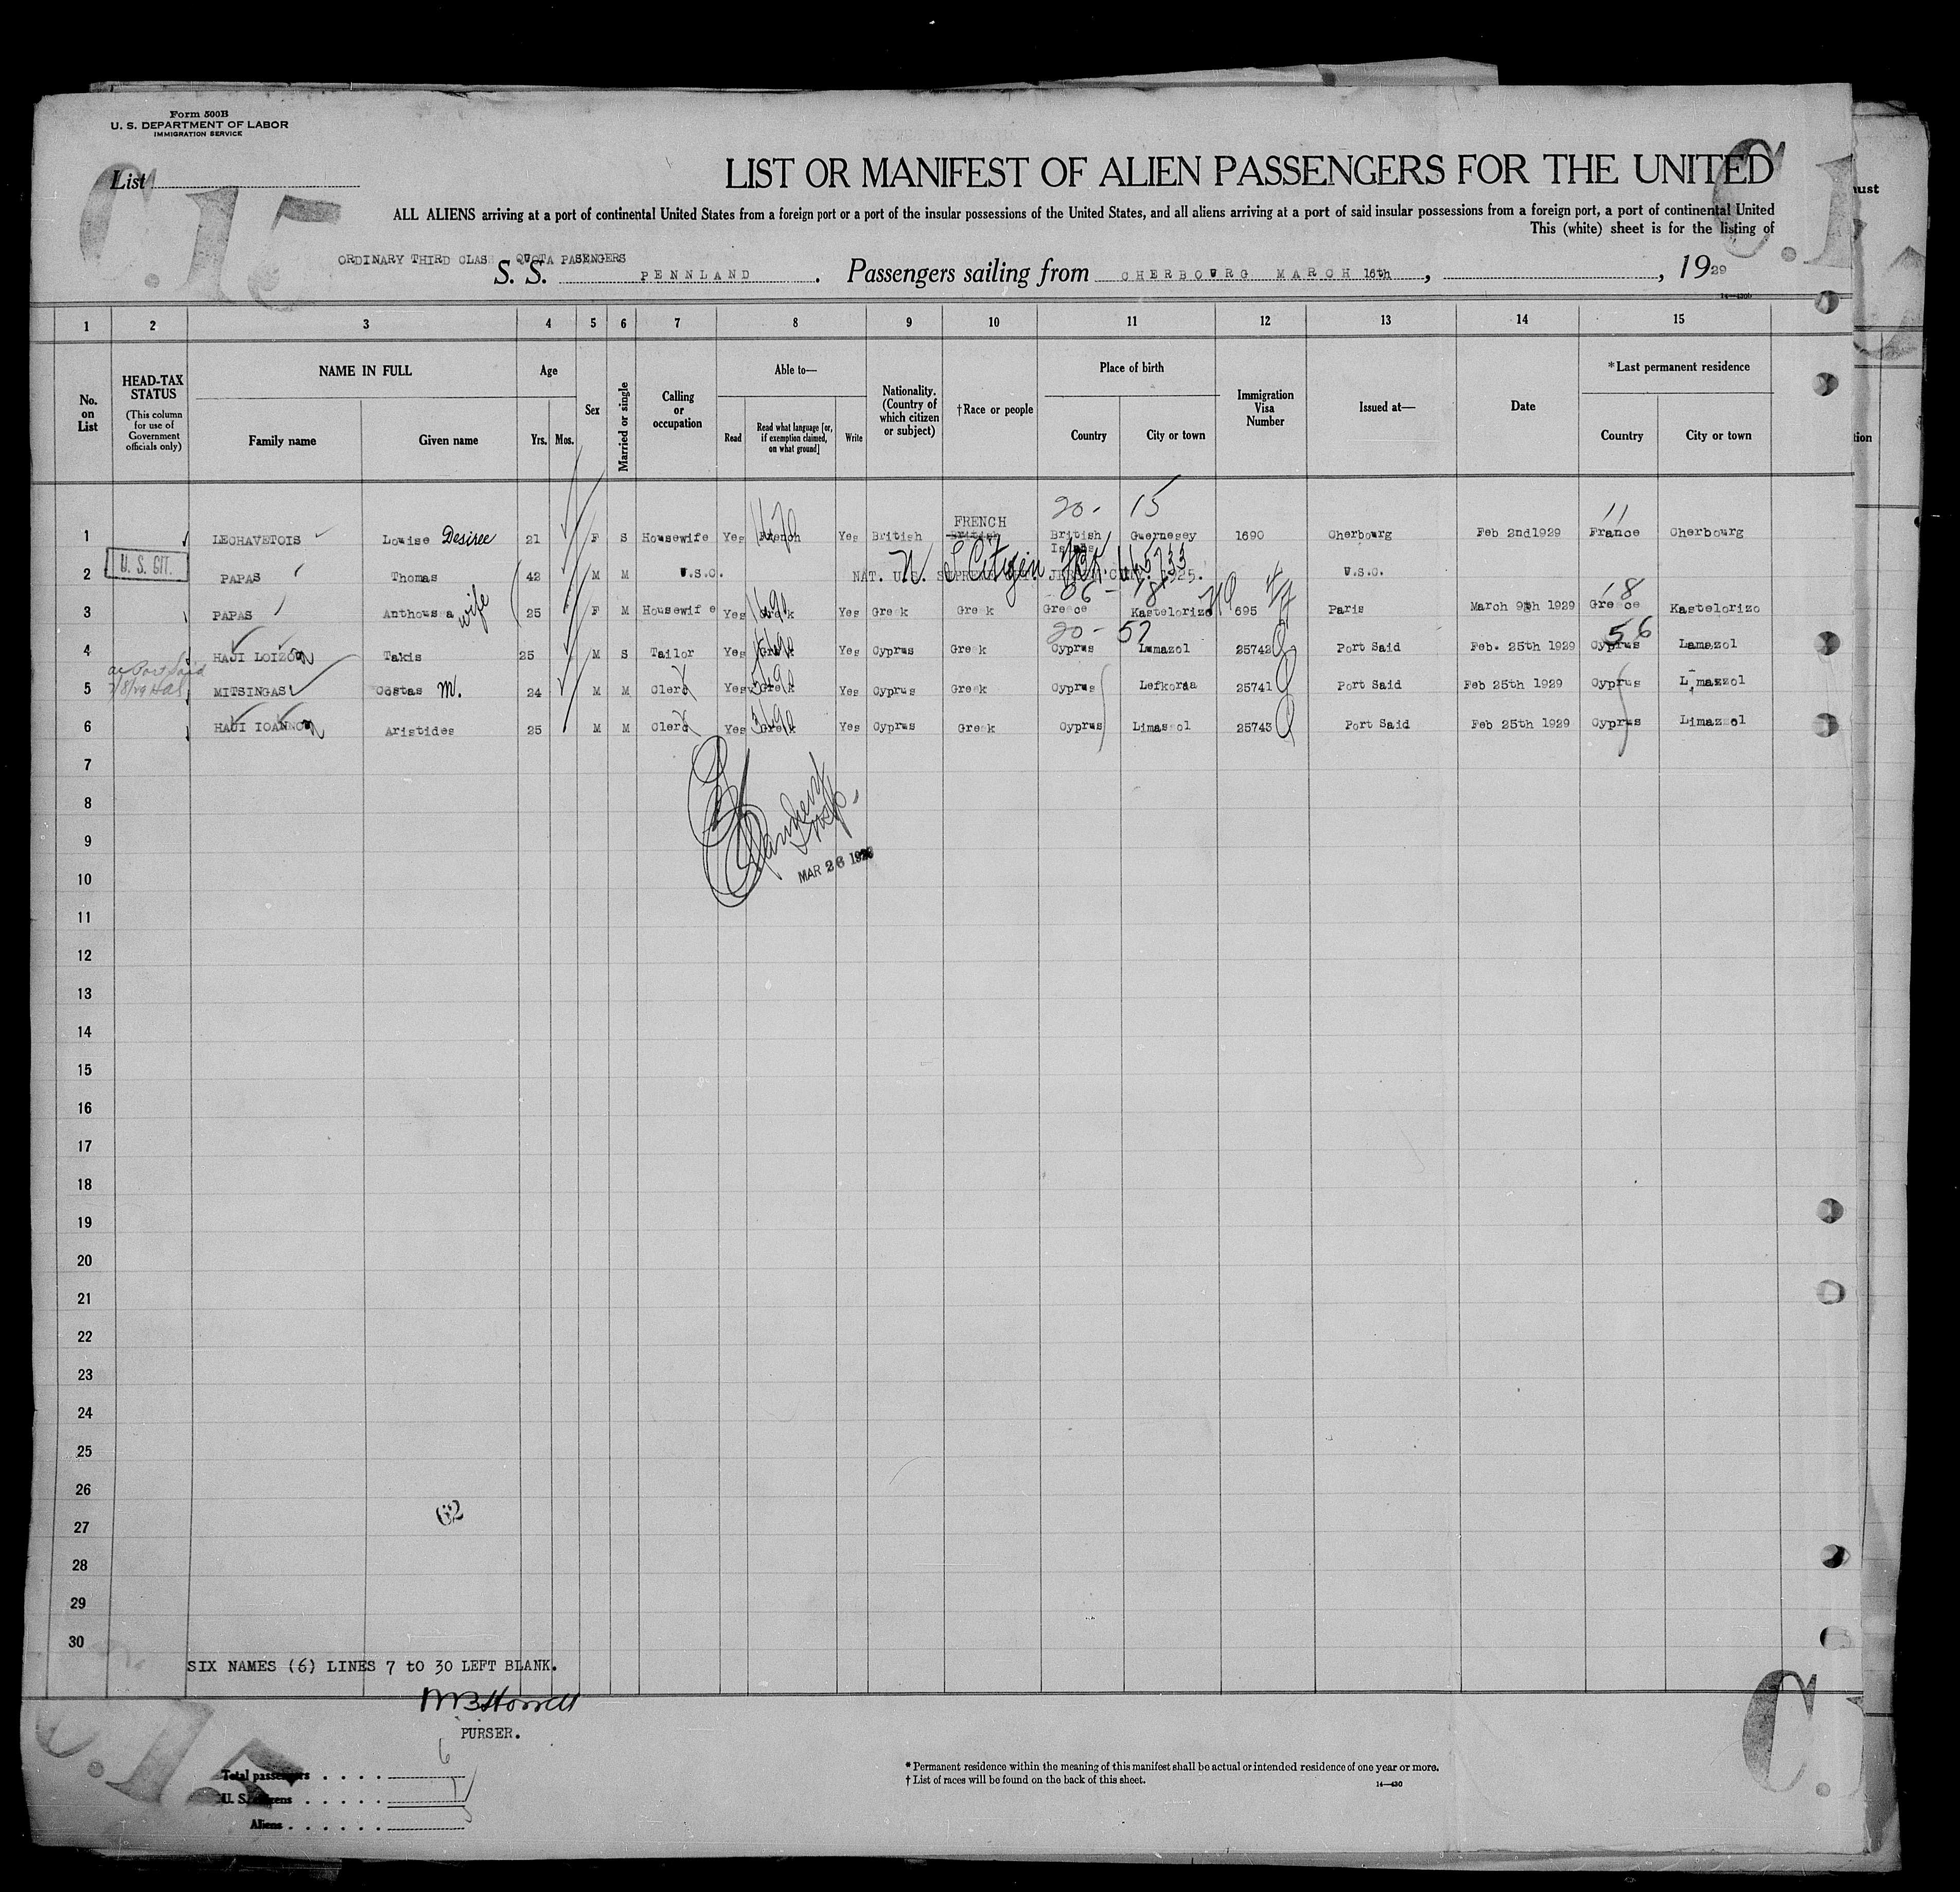 Form 500B
U. S. DEPARTMENT OF LABOR
IMMIGRATION SERVICE
List
C.15
LIST OR MANIFEST OF ALIEN PASSENGERS FOR THE UNITED
ALL ALIENS arriving at a port of continental United States from a foreign port or a port of the insular possessions of the United States, and all aliens arriving at a port of said insular possessions from a foreign port, a port of continental United
This (white) sheet is for the listing of
ORDINARY THIRD CLAS QUOTA PASENGERS
S. S. PENNLAND. Passengers sailing from CHERBOURG MARCH 16th, , 1929
14—430b
1 2 3 4 5 6 7 8 9 10 11 12 13 14 15
No. on List
HEAD-TAX STATUS
(This column for use of Government officials only)
NAME IN FULL
Family name Given name
Age
Yrs. Mos.
Sex
Married or single
Calling or occupation
Able to—
Read
Read what language [or, if exemption claimed, on what ground]
Write
Nationality. (Country of which citizen or subject)
†Race or people
Place of birth
Country City or town
Immigration Visa Number
Issued at—
Date
*Last permanent residence
Country City or town
20- 15 11
FRENCH
1 LECHAVETOIS Louise Desiree 21 F S Housewife Yes French Yes British British British Isles Guernesey 1690 Cherbourg Feb 2nd1929 France Cherbourg
U. S. CIT.
2 PAPAS Thomas 42 M M U.S.C. NAT. U.S. 1925. U.S.C.
06- 18
3 PAPAS Anthoussa wife 25 F M Housewife Yes Greek Yes Greek Greek Greece Kastelorizo 695 Paris March 9th 1929 Greece Kastelorizo
20- 52 56
4 HAJI LOIZOU Takis 25 M S Tailor Yes Greek Yes Cyprus Greek Cyprus Lamazol 25742 Port Said Feb. 25th 1929 Cyprus Lamazol
5 MITSINGAS Costas M. 24 M M Clerc Yes Greek Yes Cyprus Greek Cyprus Lefkoraa 25741 Port Said Feb 25th 1929 Cyprus Limazzol
6 HAJI IOANNOU Aristides 25 M M Clerc Yes Greek Yes Cyprus Greek Cyprus Limassol 25743 Port Said Feb 25th 1929 Cyprus Limazzol
7
8
9
MAR 26 1929
10
11
12
13
14
15
16
17
18
19
20
21
22
23
24
25
26
62
27
28
29
30
SIX NAMES (6) LINES 7 tO 30 LEFT BLANK.
PURSER.
Total passengers . . . . 6
U. S. citizens . . . . . 1
Aliens . . . . . . 5
* Permanent residence within the meaning of this manifest shall be actual or intended residence of one year or more.
† List of races will be found on the back of this sheet.
14—430
C.15